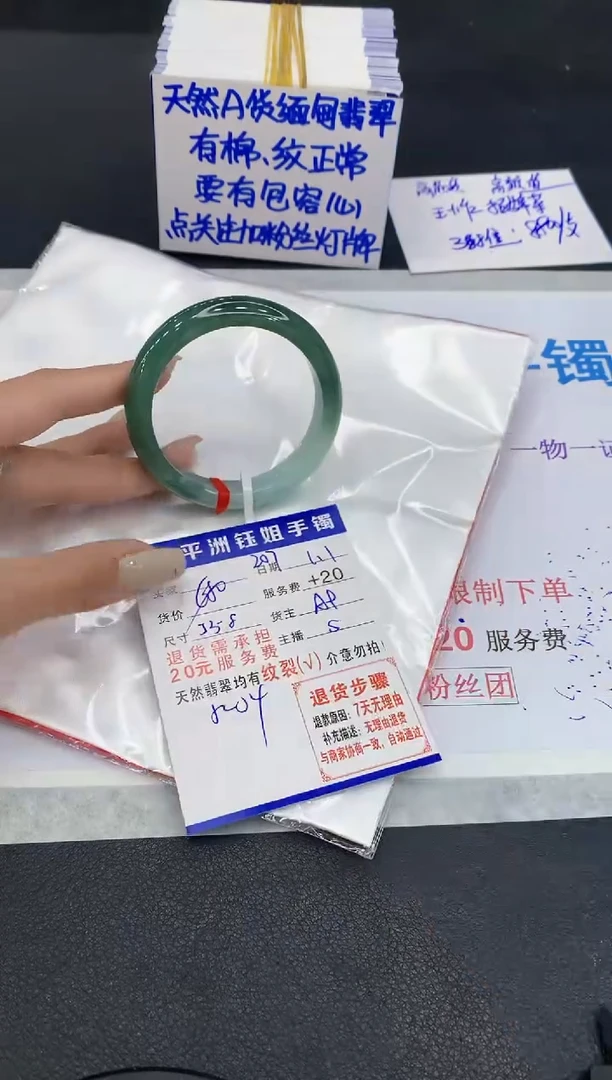 天然A货缅甸翡翠
有棉、纹正常
要有包容心
点关注加粉丝灯牌
手镯
一物一证
限制下单
20 服务费
粉丝团
平洲钰姐手镯
日期 1.1
服务费 +20
货价
货主 AP
尺寸
主播 S
退货需承担
20元服务费
天然翡翠均有纹裂(√) 介意勿拍!
退货步骤
退款原因: 7天无理由
补充描述: 无理由退货
与商家协商一致、自动通过